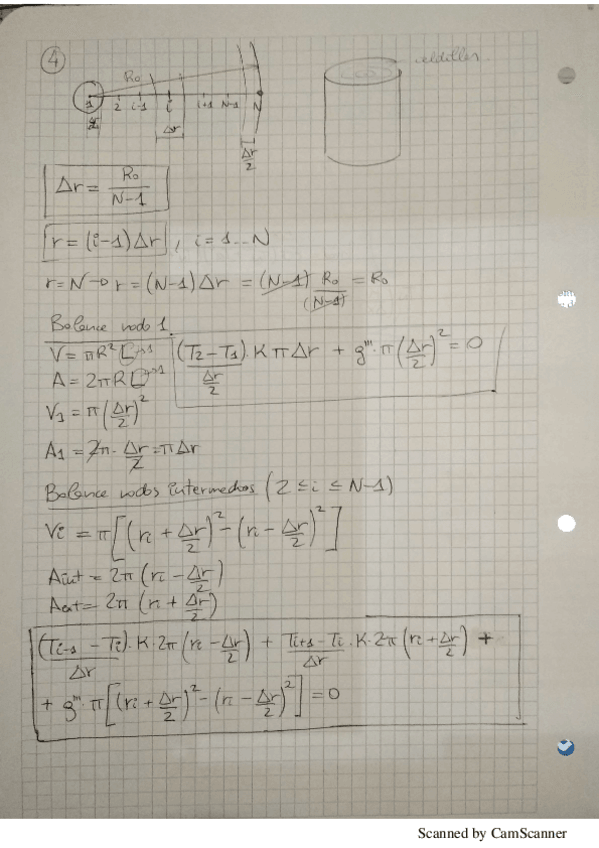 4
R₀
1 2 i-1 i i+1 N-1 N
Δr
Δr/2
Δr = R₀/(N-1)
r = (i-1)Δr , i = 1...N
r = N → r = (N-1)Δr = (N-1) R₀/(N-1) = R₀
Balance nodo 1.
V = πR²L→1
(T₂-T₁)/(Δr/2) · K π Δr + g''' · π (Δr/2)² = 0
A = 2πRL→1
V₁ = π(Δr/2)²
A₁ = 2π · Δr/2 = πΔr
Balance nodos intermedios (2 ≤ i ≤ N-1)
Vi = π[(ri + Δr/2)² - (ri - Δr/2)²]
Aint = 2π(ri - Δr/2)
Aext = 2π(ri + Δr/2)
(Ti-1 - Ti)/Δr · K · 2π(ri - Δr/2) + (Ti+1 - Ti)/Δr · K · 2π(ri + Δr/2) +
+ g''' · π[(ri + Δr/2)² - (ri - Δr/2)²] = 0
Scanned by CamScanner